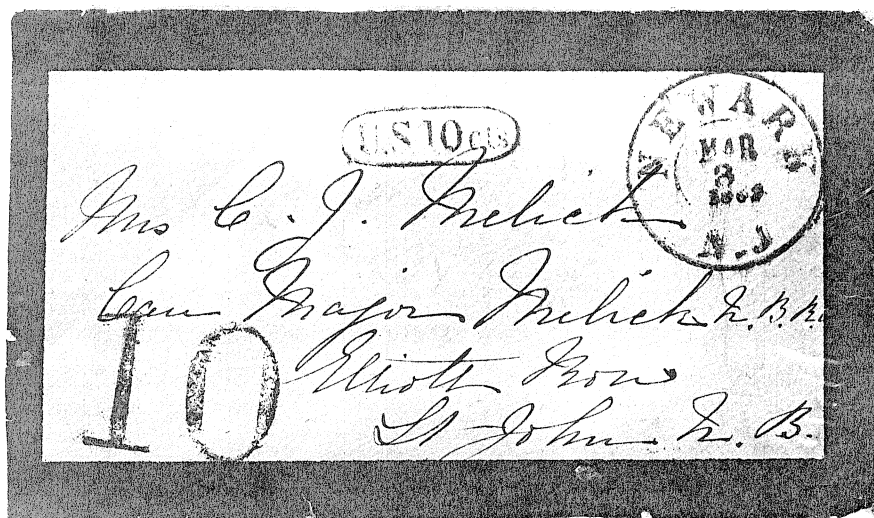 U.S 10 cts
NEWARK
MAR
3
N.J
Mrs C. J. Melick
Care Major Melick N. B. R.
Elliott Row
St John N. B.
10